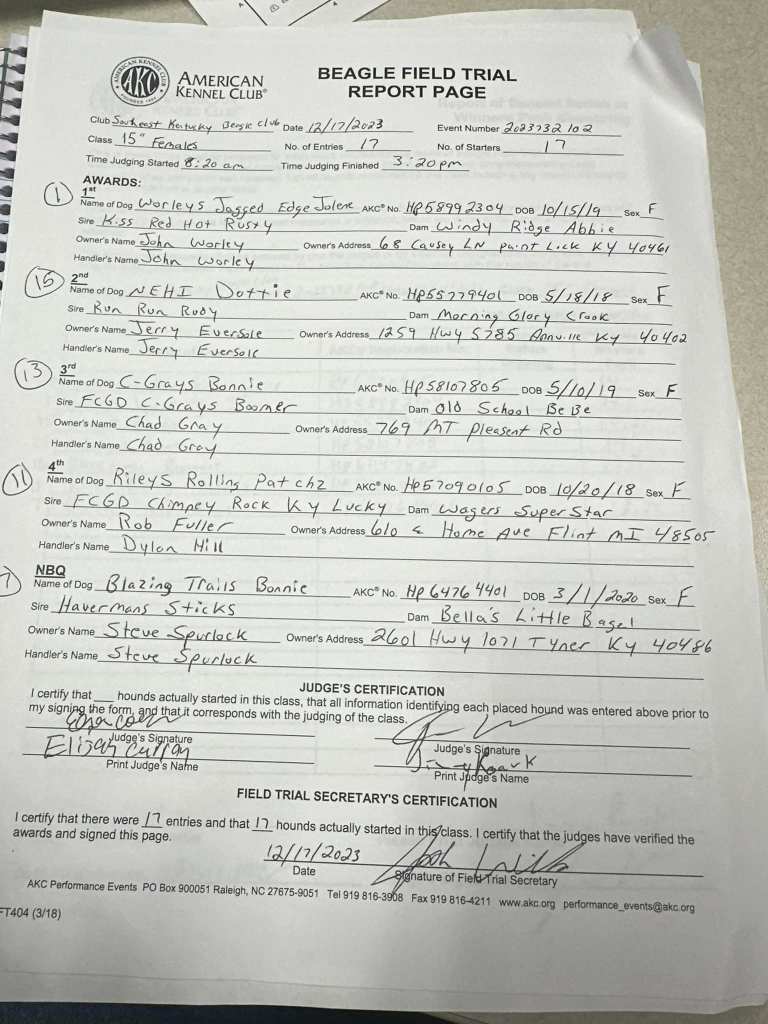 AMERICAN KENNEL CLUB
AKC
FOUNDED 1884
AMERICAN
KENNEL CLUB®
BEAGLE FIELD TRIAL
REPORT PAGE
Club Southeast Kentucky Beagle Club Date 12/17/2023 Event Number 2023732102
Class 15" Females No. of Entries 17 No. of Starters 17
Time Judging Started 8:20 am Time Judging Finished 3:20pm
AWARDS:
1 1st
Name of Dog Worleys Jagged Edge Jolene AKC® No. HP58992304 DOB 10/15/19 Sex F
Sire Kiss Red Hot Rusty Dam Windy Ridge Abbie
Owner's Name John Worley Owner's Address 68 Causey LN paint Lick KY 40461
Handler's Name John Worley
15 2nd
Name of Dog NEHI Dottie AKC® No. HP55779401 DOB 5/18/18 Sex F
Sire Run Run Rudy Dam Morning Glory Crook
Owner's Name Jerry Eversole Owner's Address 1259 Hwy 5785 Annville Ky 40402
Handler's Name Jerry Eversole
13 3rd
Name of Dog C-Grays Bonnie AKC® No. HP58107805 DOB 5/10/19 Sex F
Sire FCGD C-Grays Boomer Dam Old School BeBe
Owner's Name Chad Gray Owner's Address 769 MT pleasent Rd
Handler's Name Chad Gray
11 4th
Name of Dog Rileys Rolling Patchz AKC® No. HP57090105 DOB 10/20/18 Sex F
Sire FCGD Chimney Rock Ky Lucky Dam Wagers SuperStar
Owner's Name Rob Fuller Owner's Address 610 & Home Ave Flint MI 48505
Handler's Name Dylan Hill
7 NBQ
Name of Dog Blazing Trails Bonnie AKC® No. HP64764401 DOB 3/1/2020 Sex F
Sire Havermans Sticks Dam Bella's Little Bagel
Owner's Name Steve Spurlock Owner's Address 2601 Hwy 1071 Tyner Ky 40486
Handler's Name Steve Spurlock
JUDGE'S CERTIFICATION
I certify that ___ hounds actually started in this class, that all information identifying each placed hound was entered above prior to
my signing the form, and that it corresponds with the judging of the class.
Judge's Signature Judge's Signature
Elijah
Print Judge's Name Print Judge's Name
FIELD TRIAL SECRETARY'S CERTIFICATION
I certify that there were 17 entries and that 17 hounds actually started in this class. I certify that the judges have verified the
awards and signed this page.
12/17/2023
Date Signature of Field Trial Secretary
AKC Performance Events PO Box 900051 Raleigh, NC 27675-9051 Tel 919 816-3908 Fax 919 816-4211 www.akc.org performance_events@akc.org
FT404 (3/18)